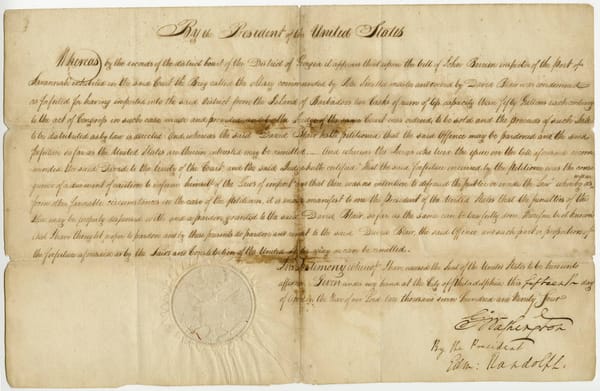 By the President of the United States
Whereas, by the records of the district Court of the District of Georgia it appears that upon the bill of John Berrien inspector of the Port of
Savannah exhibited in the said Court the Brig called the Mary commanded by and owned by David Blair was condemned
as forfeited for having imported into the said district from the Island of Barbadoes ten Casks of rum of less capacity than fifty Gallons each contrary
to the act of Congress in such case made and provided and by the Judge of the same Court was ordered to be sold and the proceeds of such sale
to be distributed as by law is directed. And whereas the said David Blair hath petitioned that the said Offence may be pardoned and the said
forfeiture so far as the United States are therein interested may be remitted And whereas the Judge who tried the
the said David to the lenity of the Court and the said Judge hath certified "That the said forfeiture incurred by the petitioner was the conse
quence of a want of caution to inform himself of the Laws of impost and that there was no intention to defraud the public or evade the Law" whereby as
from other favorable circumstances in the case of the petitioner, it is made manifest to me the President of the United States that the penalties of the
Law may be properly dispensed with and a pardon granted to the said David Blair so far as the same can be lawfully done Therefore be it known
that I have thought proper to pardon and by these presents do pardon and remit to the said David Blair, the said Offence and such part or proportion of
the forfeiture aforesaid as by the Laws and Constitution of the United States may or can be remitted.
In Testimony whereof I have caused the Seal of the United States to be hereunto
affixed Given under my hand at the City of Philadelphia this fifteenth day
of in the Year of our Lord one thousand seven hundred and Ninety four
G Washington
By the President
Edm: Randolph